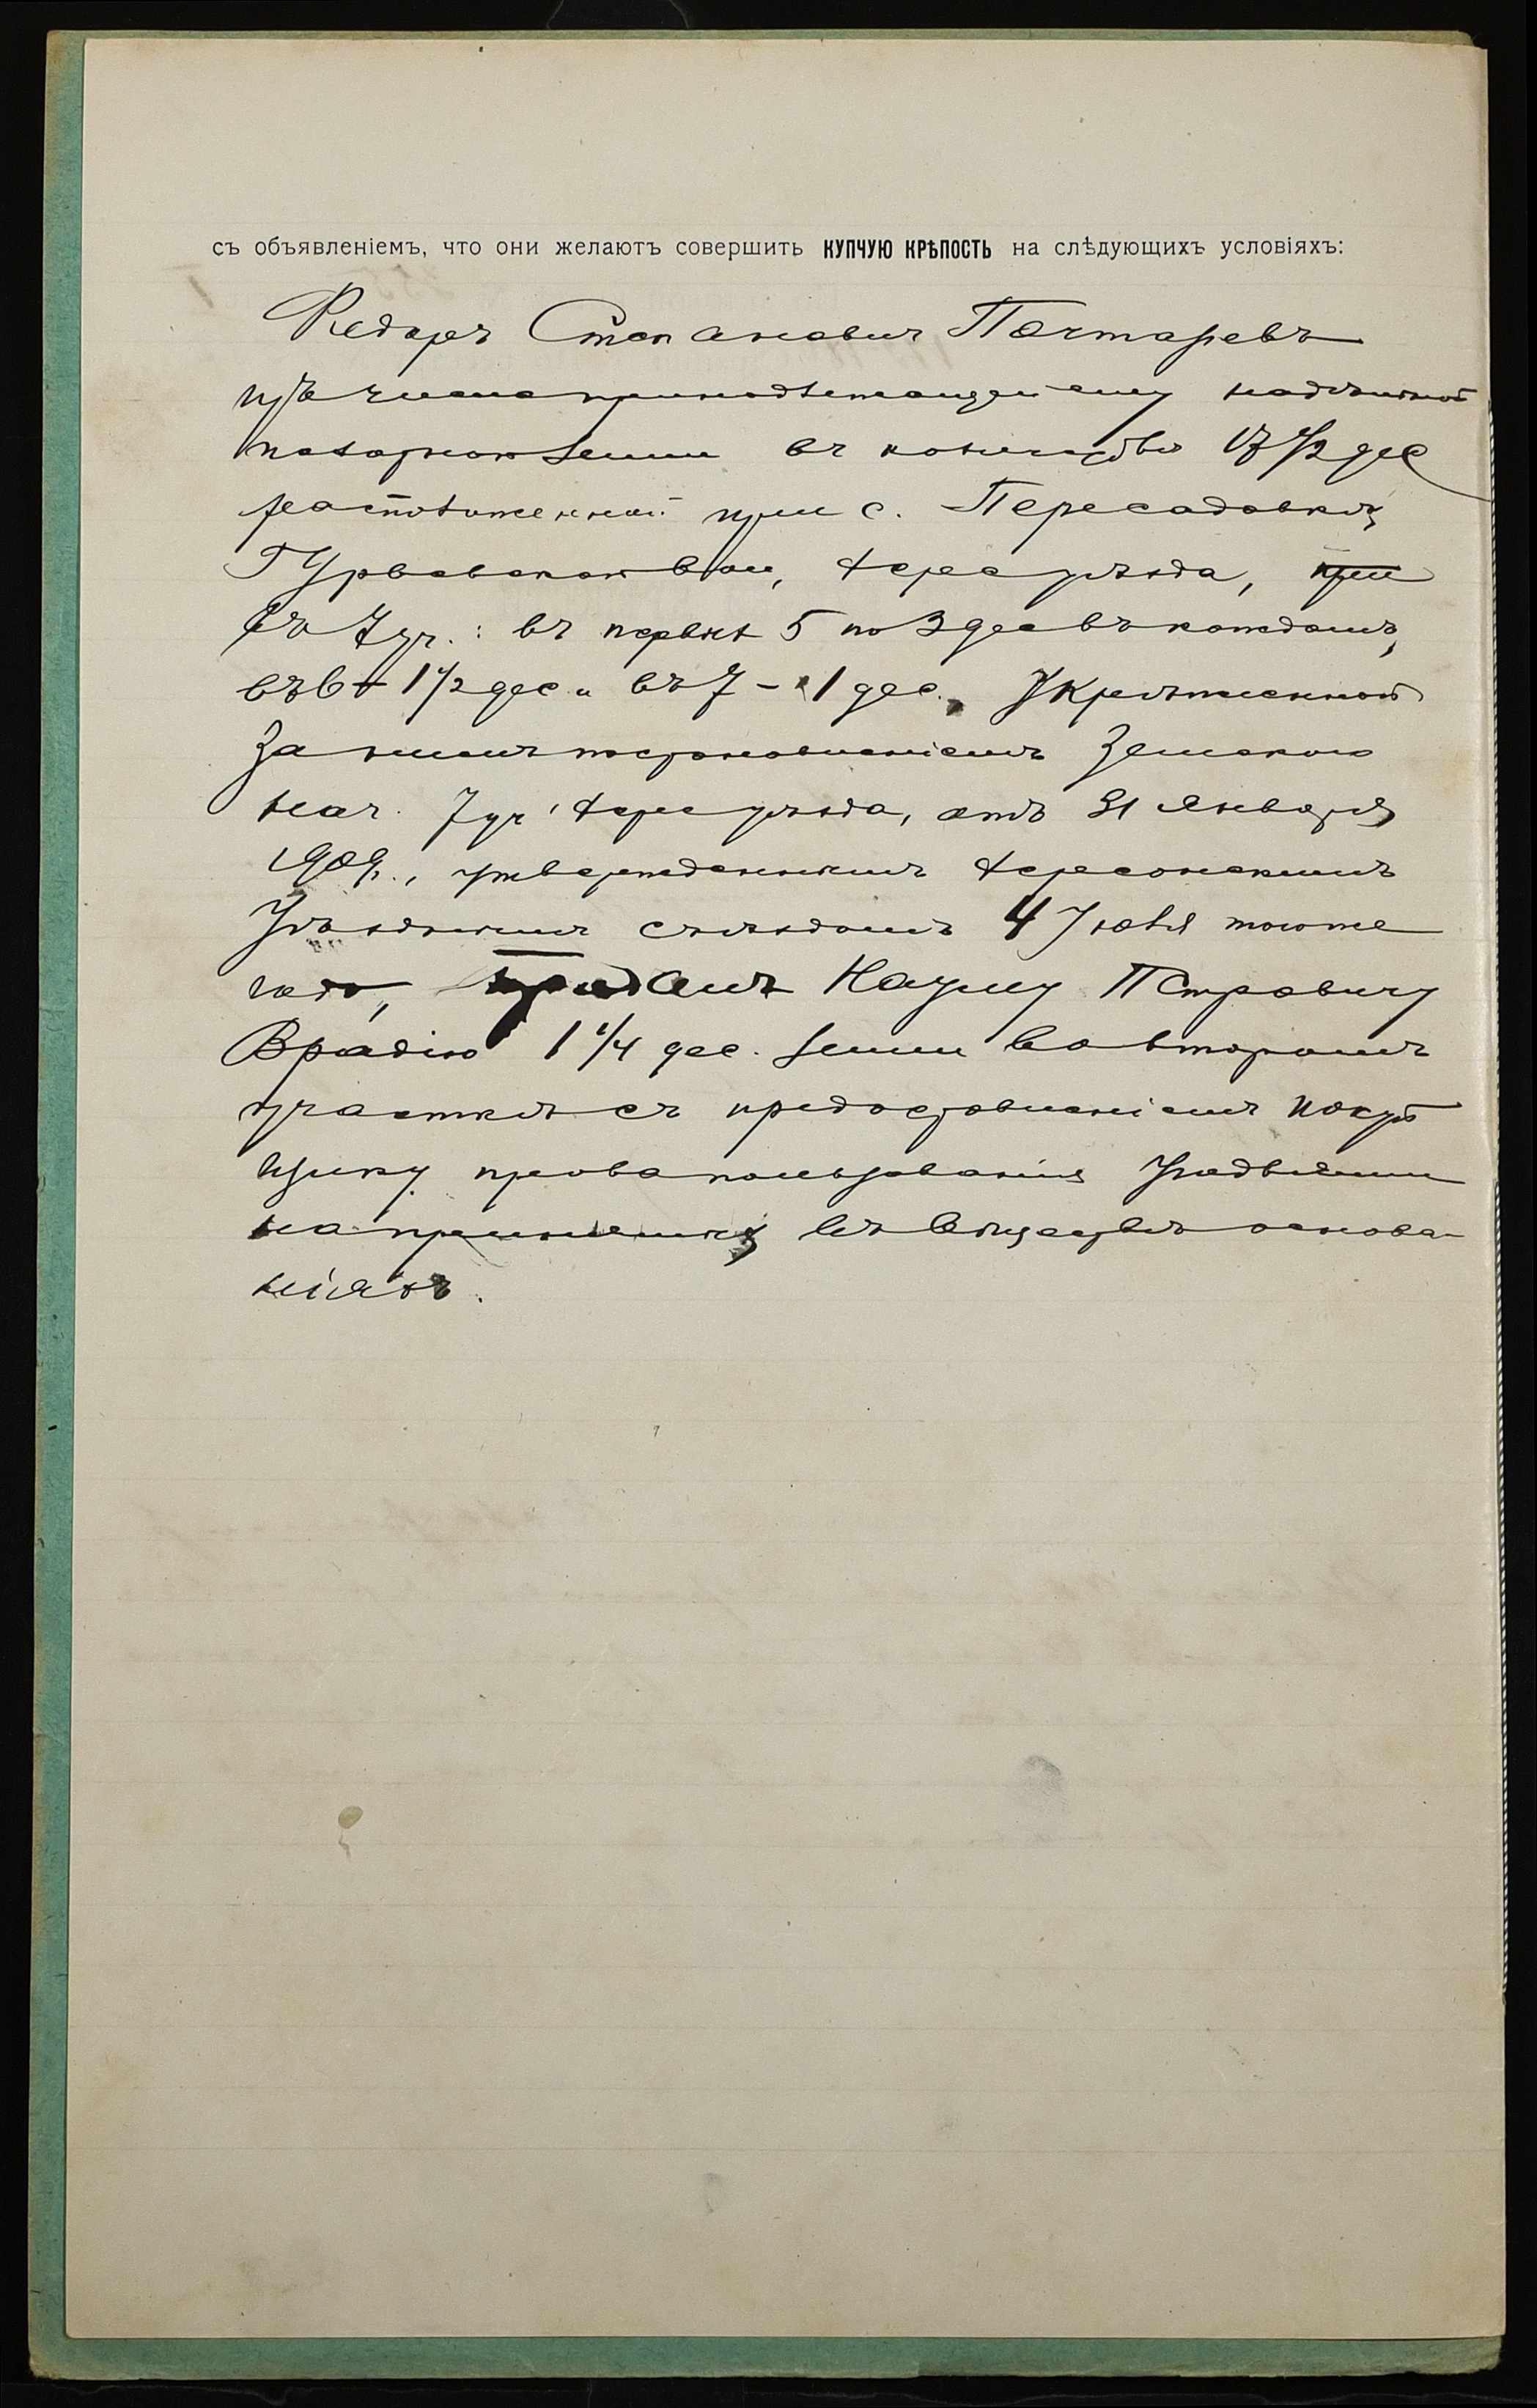 съ объявленіемъ, что они желаютъ совершить КУПЧУЮ КРѢПОСТЬ на слѣдующихъ условіяхъ:
Федоръ Степановичъ Почтаревъ
изъ числа принадлежащей ему надѣльной
полевой земли въ количествѣ 17 1/2 дес
расположенной при с. Пересадовкѣ
Гурьевской вол, Херс уѣзда, при
въ 7 уч.: въ первыхъ 5 по 3 дес въ каждомъ,
въ 6 - 1 1/2 дес. и въ 7 - 1 дес., Укрѣпленной
за нимъ постановленіемъ Земскаго
нач. 7 уч. Херс уѣзда, отъ 31 Января
1909г., утвержденнымъ Херсонскимъ
Уѣзднымъ съѣздомъ 4 Іюня того же
года, продалъ Науму Петровичу
Врадію 1 1/4 дес. земли во второмъ
участкѣ съ предоставленіемъ покуп
щику права пользованія угодьями
на принятыхъ въ обществѣ основа-
ніяхъ.